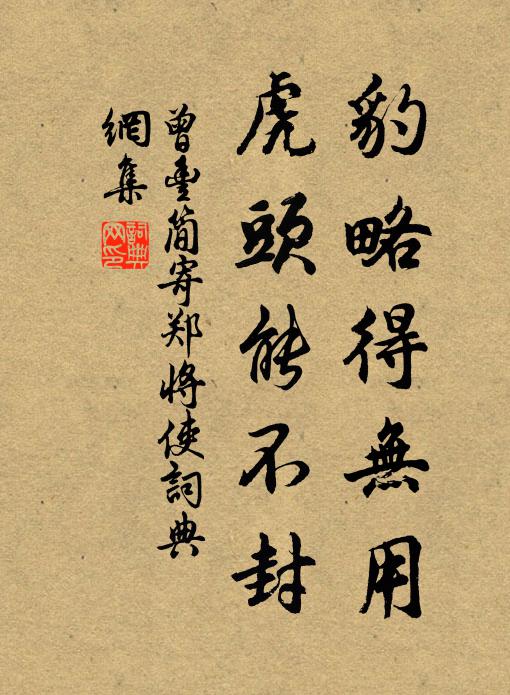 豹略得無用
虎頭能不封
曾豊简寄郑將使詞典
網集
詞典
网印